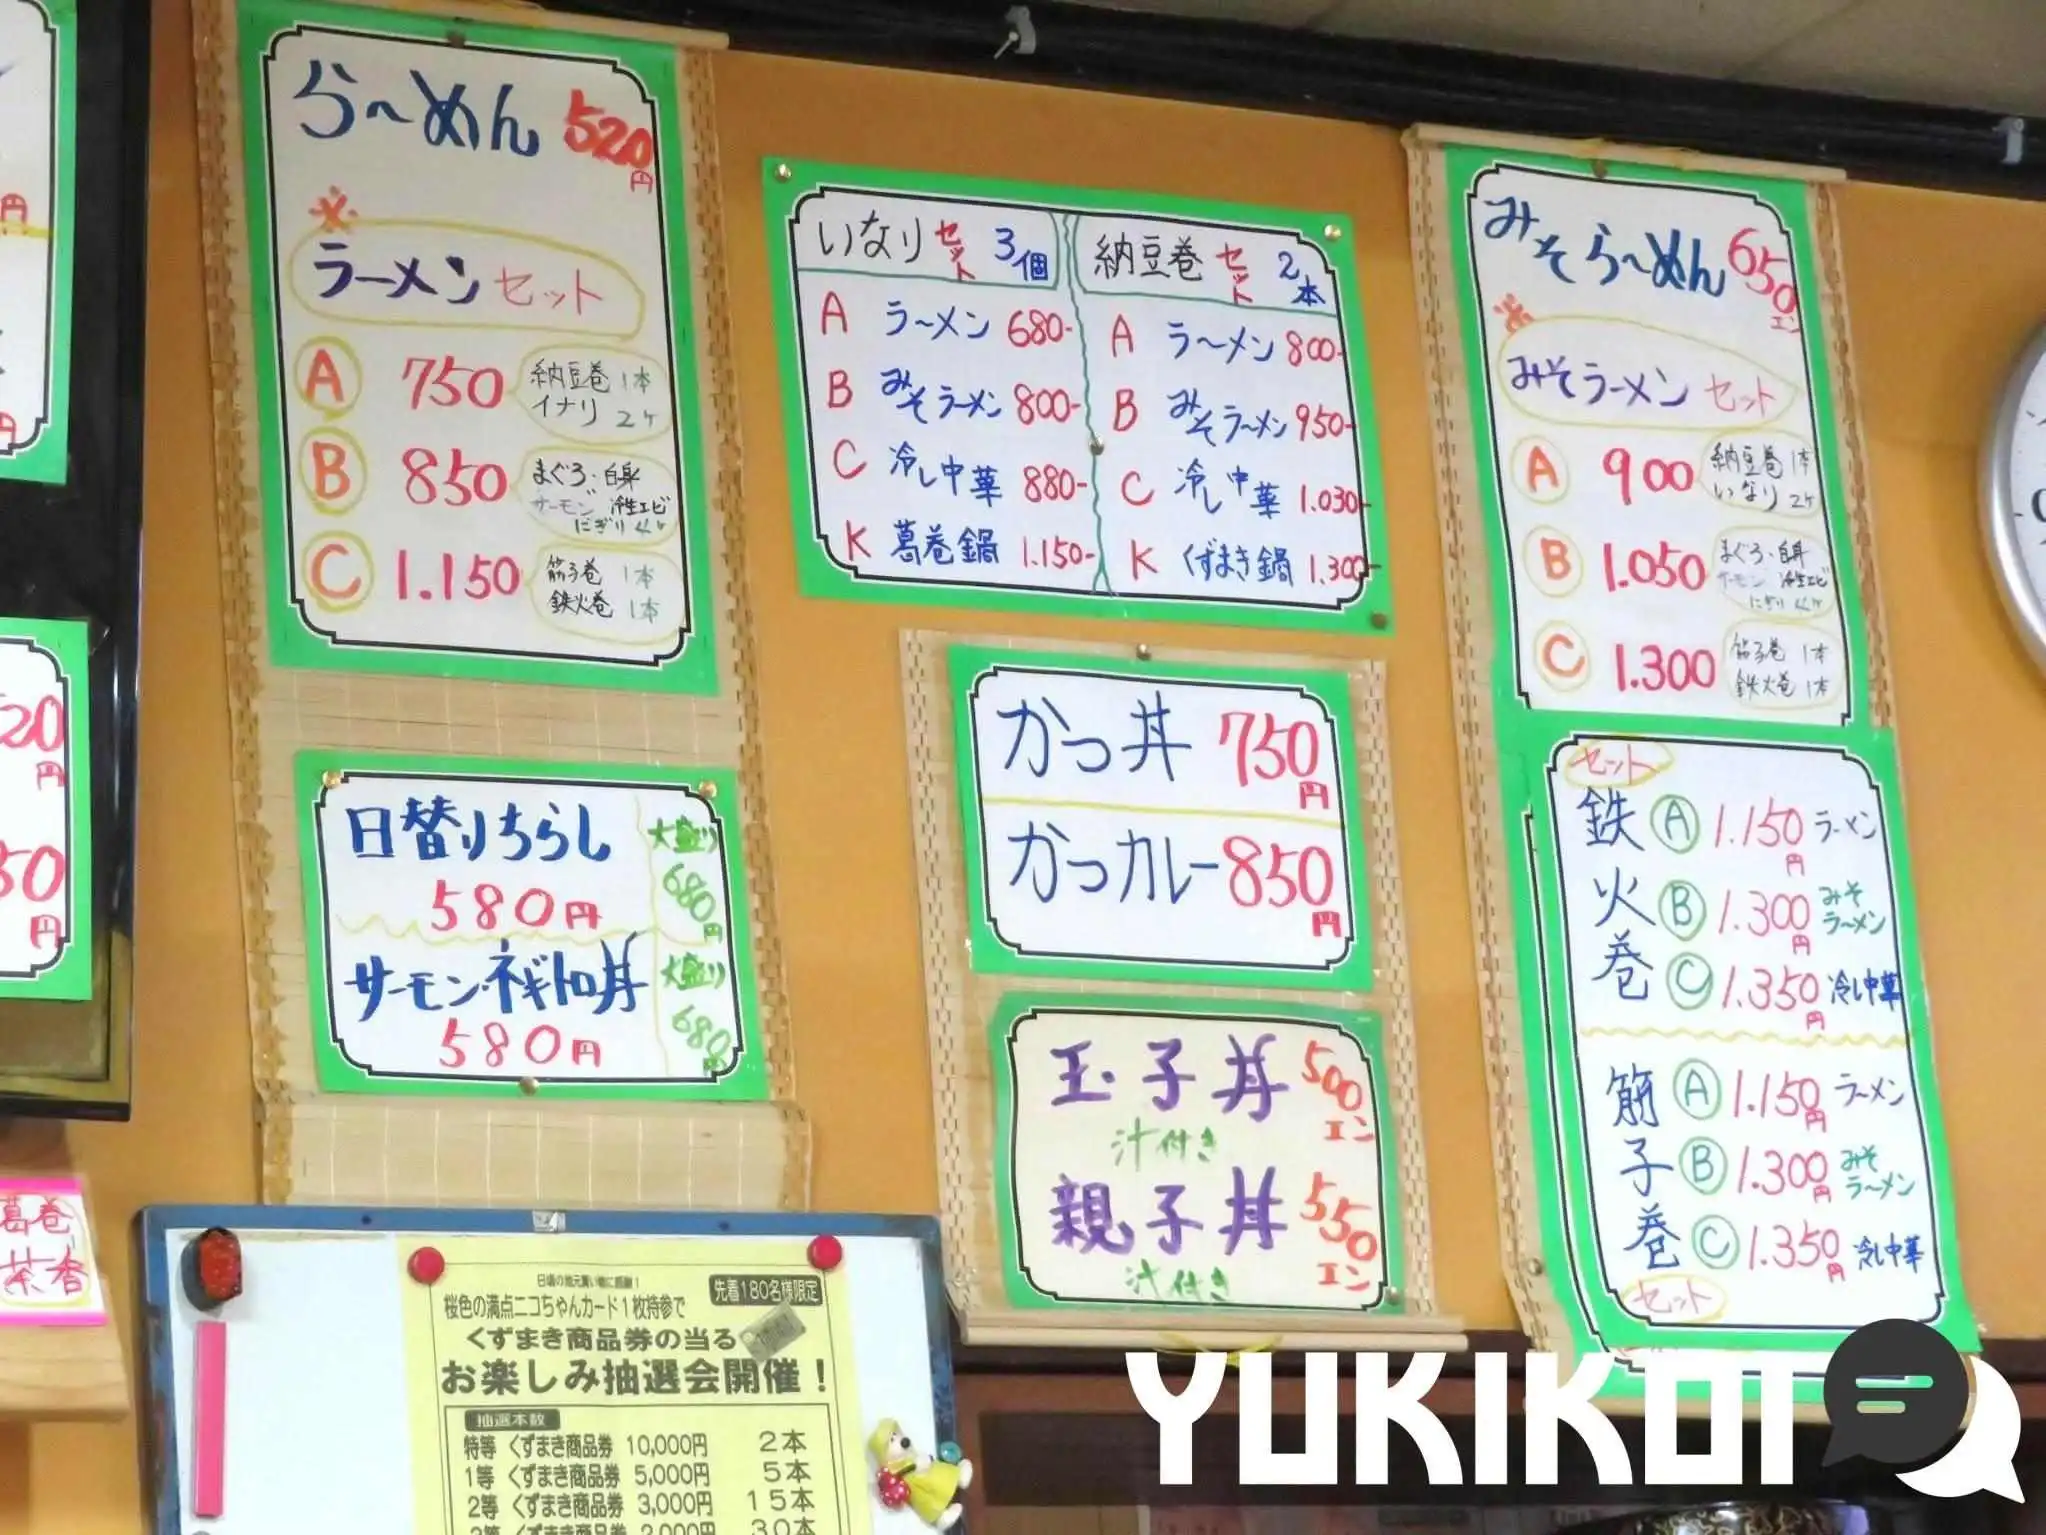 らーめん 520円
※
ラーメンセット
A 750 納豆巻 1本
イナリ 2ケ
B 850 まぐろ・白身
サーモン 冷生エビ
にぎり
C 1.150 筋子巻 1本
鉄火巻 1本
日替りちらし 大盛り
580円 680円
サーモン・ネギトロ丼 大盛り
580円 680円
いなりセット 3個
A ラーメン 680-
B みそラーメン 800-
C 冷し中華 880-
K 葛巻鍋 1.150-
納豆巻セット 2本
A ラーメン 800-
B みそラーメン 950-
C 冷し中華 1.030-
K くずまき鍋 1.300-
かつ丼 750円
かつカレー 850円
玉子丼 500エン
汁付き
親子丼 550エン
汁付き
みそらーめん 650エン
※
みそラーメンセット
A 900 納豆巻 1本
いなり 2ケ
B 1.050 まぐろ・白身
サーモン 冷生エビ
にぎり
C 1.300 筋子巻 1本
鉄火巻 1本
セット
鉄火巻
A 1.150円 ラーメン
B 1.300円 みそラーメン
C 1.350円 冷し中華
筋子巻
A 1.150円 ラーメン
B 1.300円 みそラーメン
C 1.350円 冷し中華
セット
葛巻
茶香
日頃の地元買い物に感謝!
先着180名様限定
桜色の満点ニコちゃんカード1枚持参で
くずまき商品券の当る
お楽しみ抽選会開催!
抽選本数
特等 くずまき商品券 10,000円 2本
1等 くずまき商品券 5,000円 5本
2等 くずまき商品券 3,000円 15本
3等 くずまき商品券 2,000円 30本
YUKIKOI